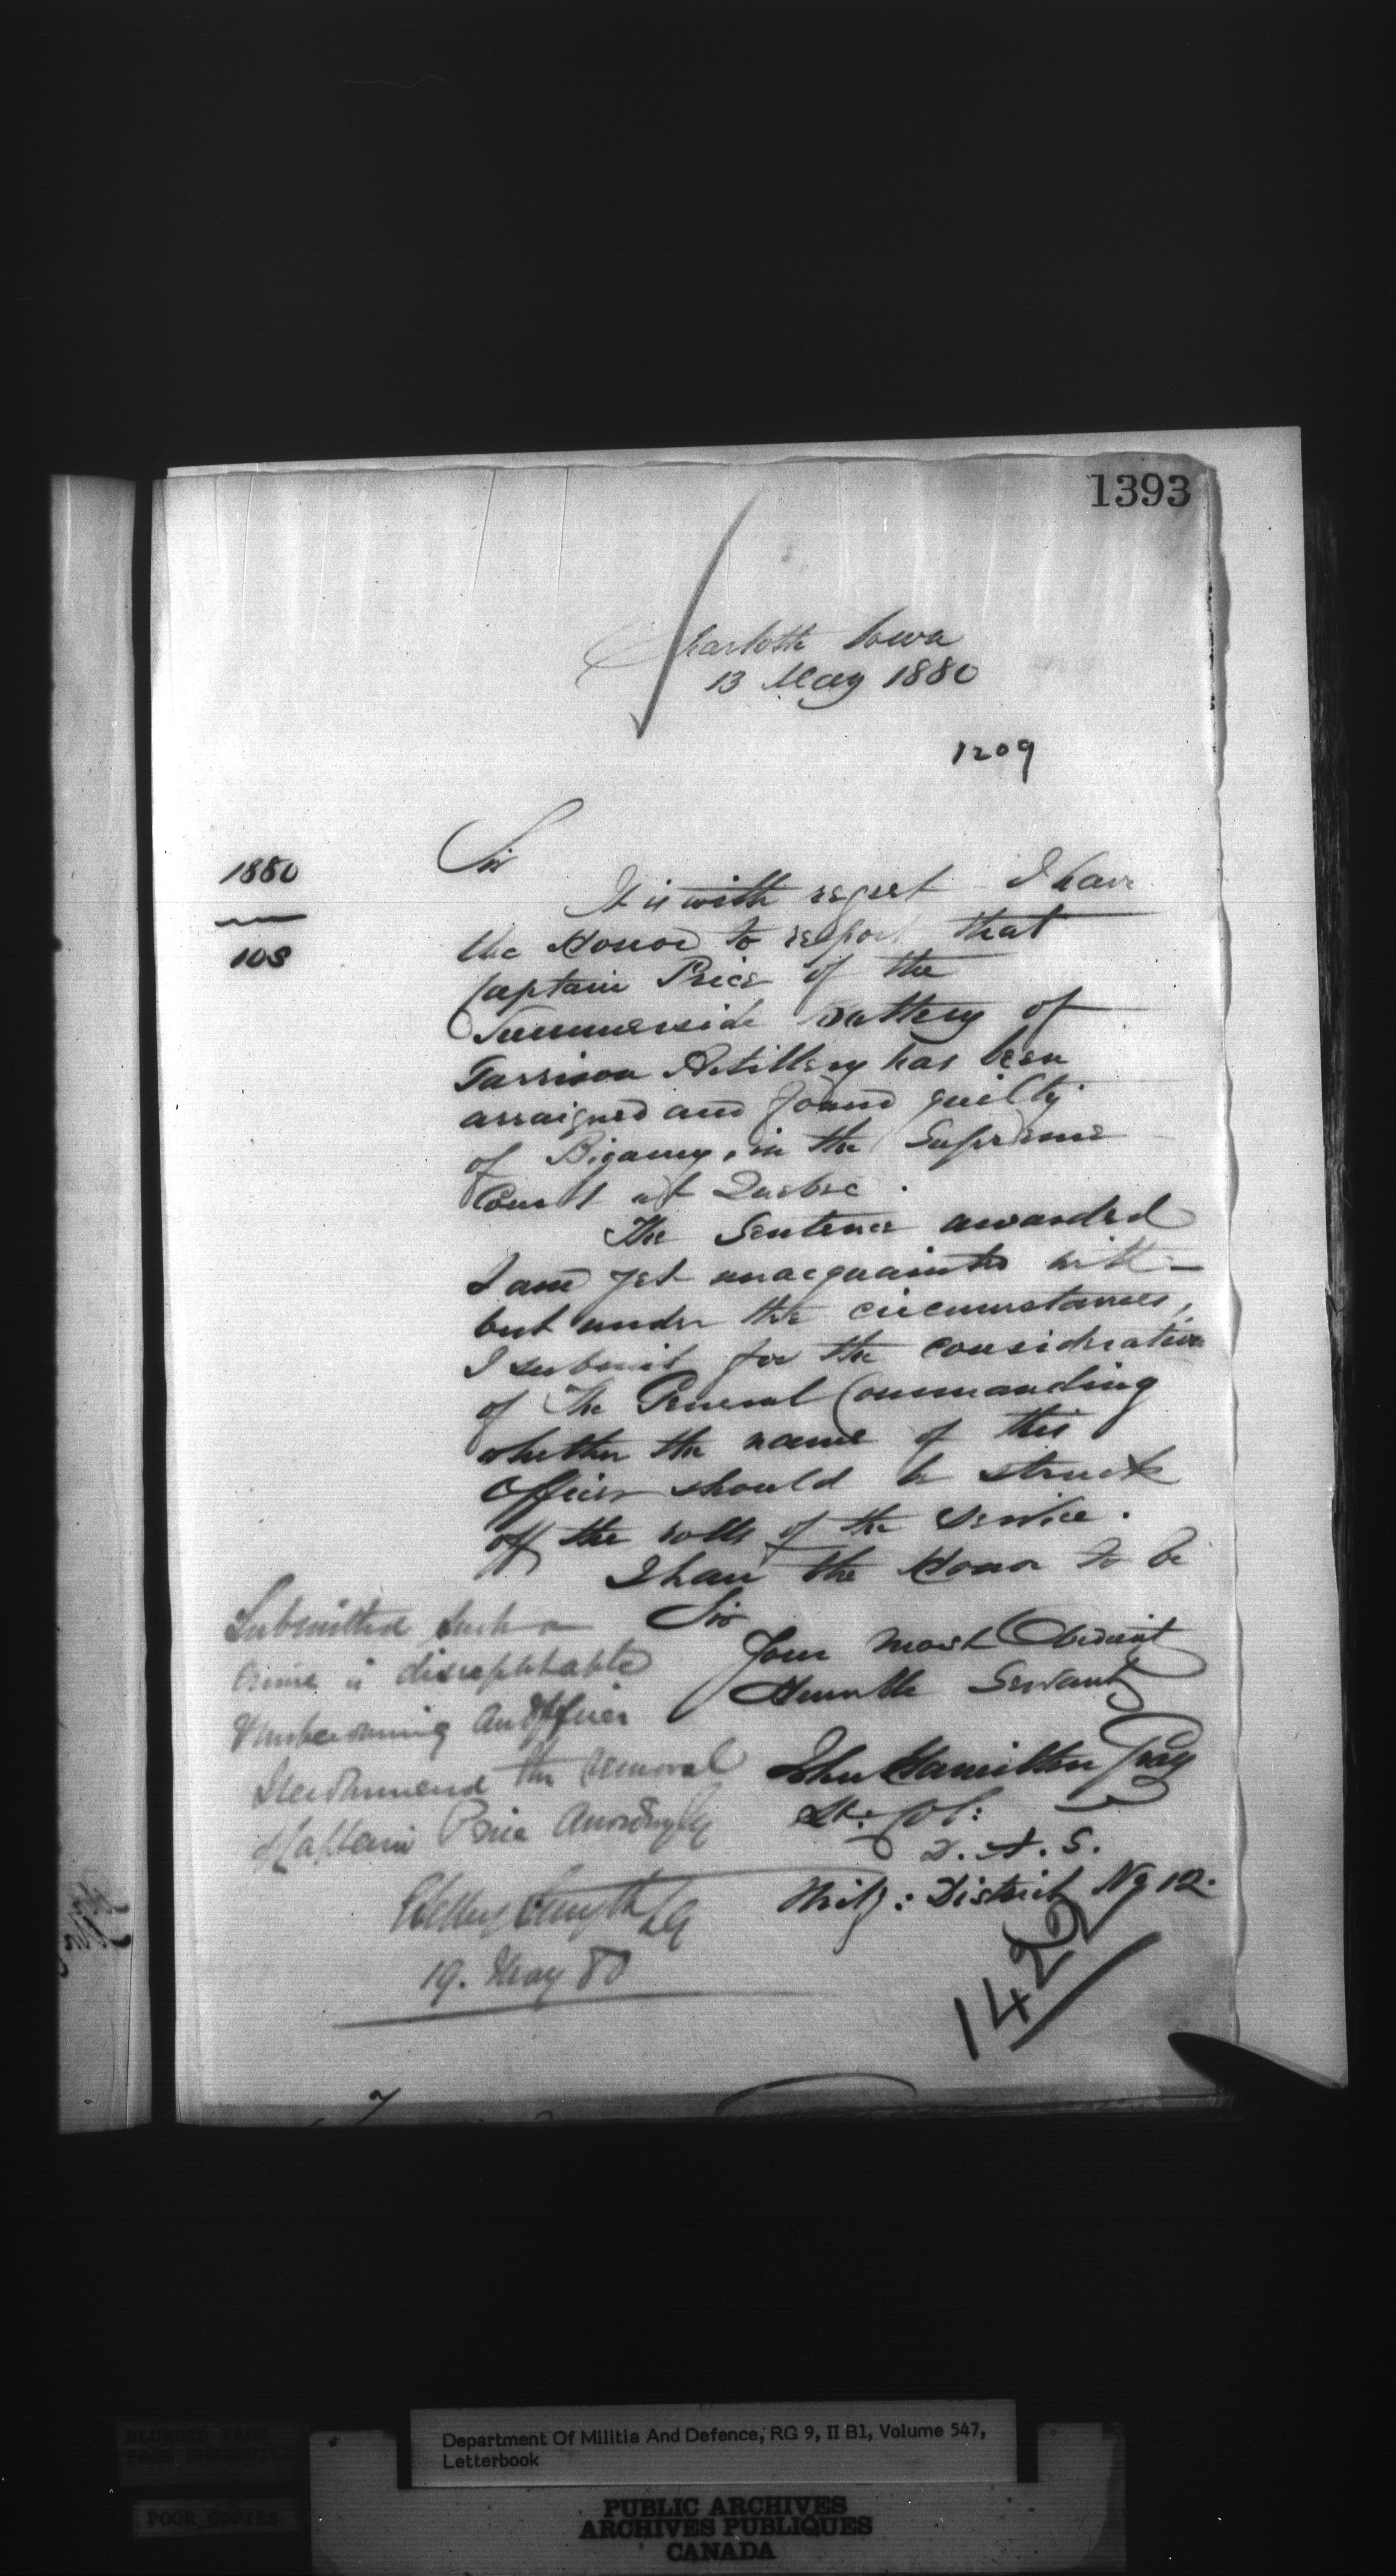 1393
Charlotte Town
13 May 1880
1209
1880
108
Sir
It is with regret I have
the Honor to report that
Captain Price of the
Summerside Battery of
Garrison Artillery has been
arraigned and found guilty
of Bigamy, in the Supreme
Court at Quebec.
The Sentence awarded
I am yet unacquainted with—
but under the circumstances,
I submit for the consideration
of The General Commanding
whether the name of this
Officer should be struck
off the rolls of the Service.
I have the Honor to be
Sir
Your Most Obedient
Humble Servant
John Hamilton Gray
Lt. Col:
D.A.G.
Mily: District No 12.
Submitted Such a
crime is disreputable
& unbecoming an Officer
I recommend the removal
of Captain Price accordingly
E Selby Smyth LG
19. May 80
1422
Department Of Militia And Defence, RG 9, II B1, Volume 547,
Letterbook
BLURRED PAGE
PAGE EMBROUILLÉE
POOR COPIES
PUBLIC ARCHIVES
ARCHIVES PUBLIQUES
CANADA